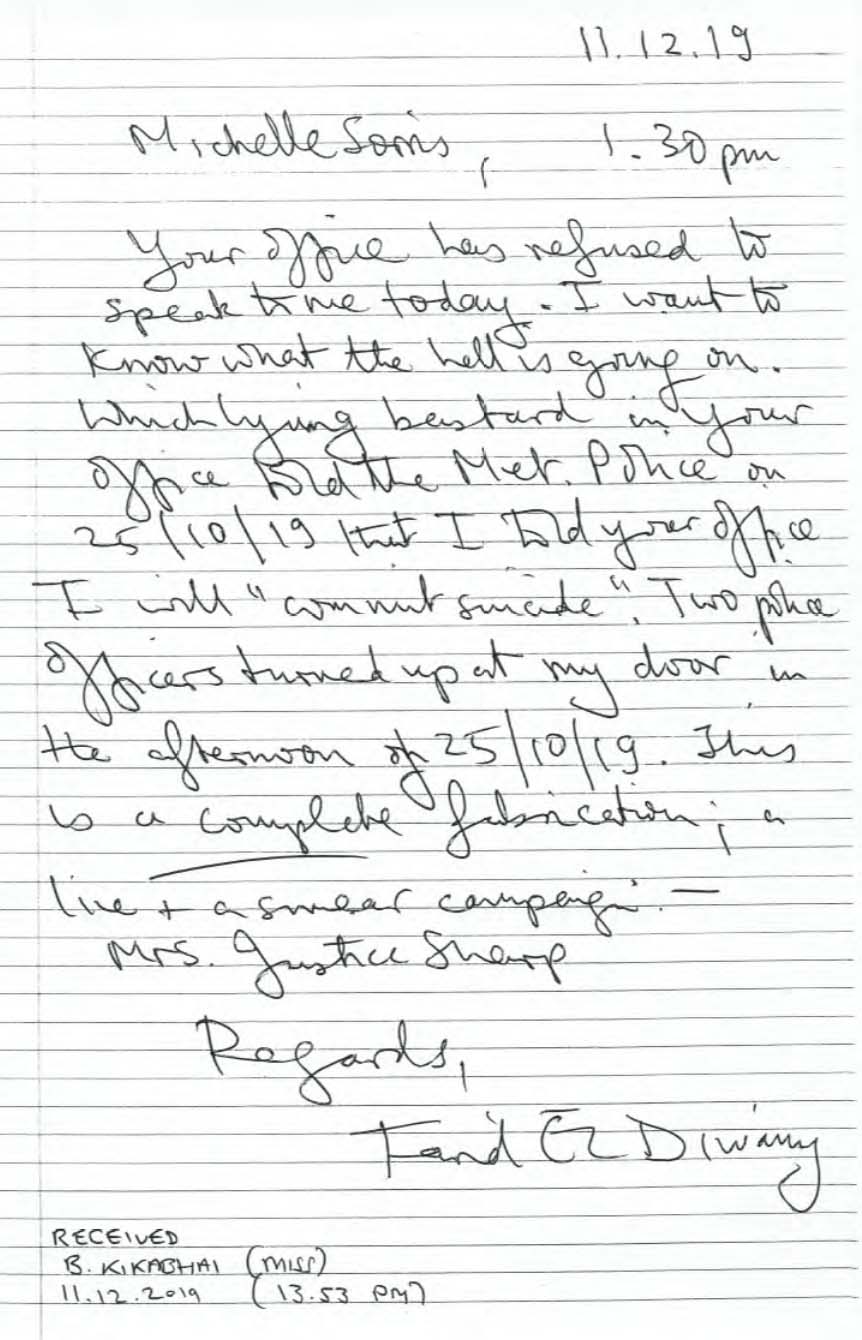 11.12.19
Michelle Sorris, 1.30 pm
Your office has refused to
speak to me today. I want to
know what the hell is going on.
Which lying bastard in your
office told the Met. Police on
25/10/19 that I told your office
I will "commit suicide". Two police
officers turned up at my door in
the afternoon of 25/10/19. This
is a complete fabrication; a
lie + a smear campaign. —
Mrs. Justice Sharp
Regards,
Farid El Diwany
RECEIVED
B. KIKABHAI (MISS)
11.12.2019 (13.53 PM)